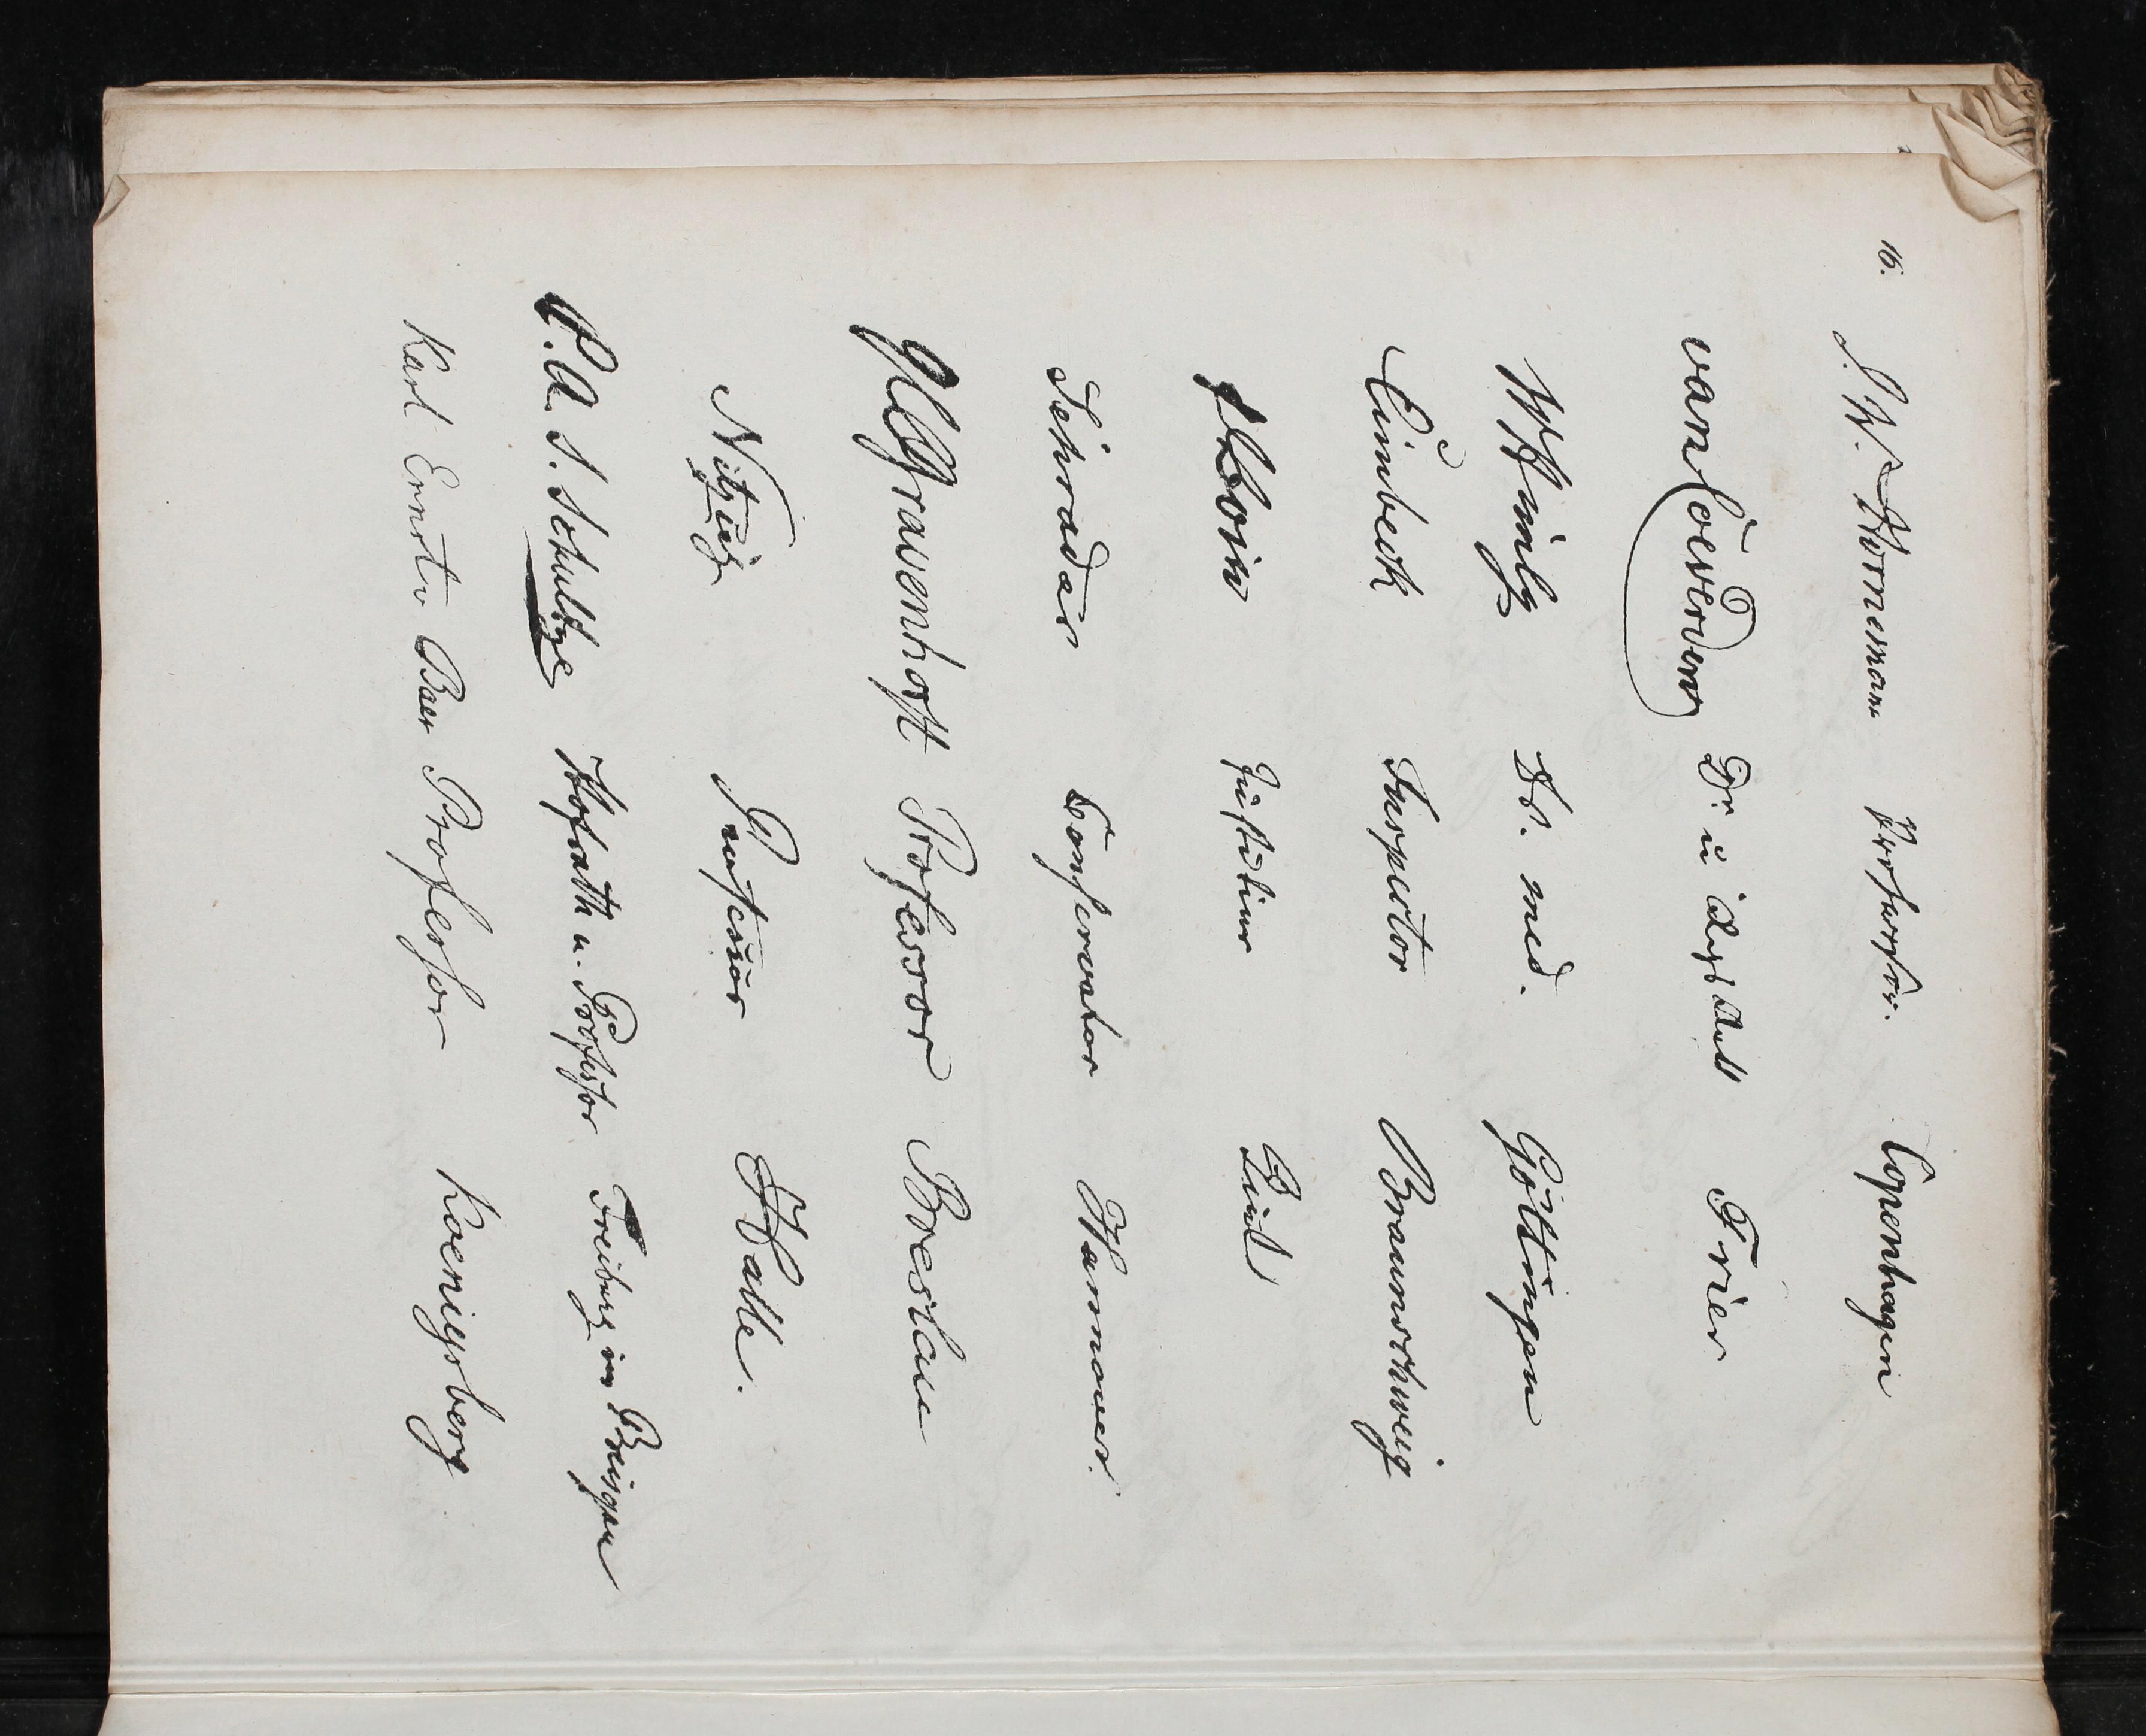 16.
J. W. Hornemann Professor. Copenhagen
van Coeverden Dr Trier
Dr. med. Göttingen
Eimbeck Inspector Braunschweig
Schrader Conservator Hannover.
Gravenhorst Professor Breslau
Nitzsch Professor Halle.
C. A. S. Schultze Hofrath u. Professor Freiburg im Breisgau
Karl Ernst v Baer Professor Koenigsberg